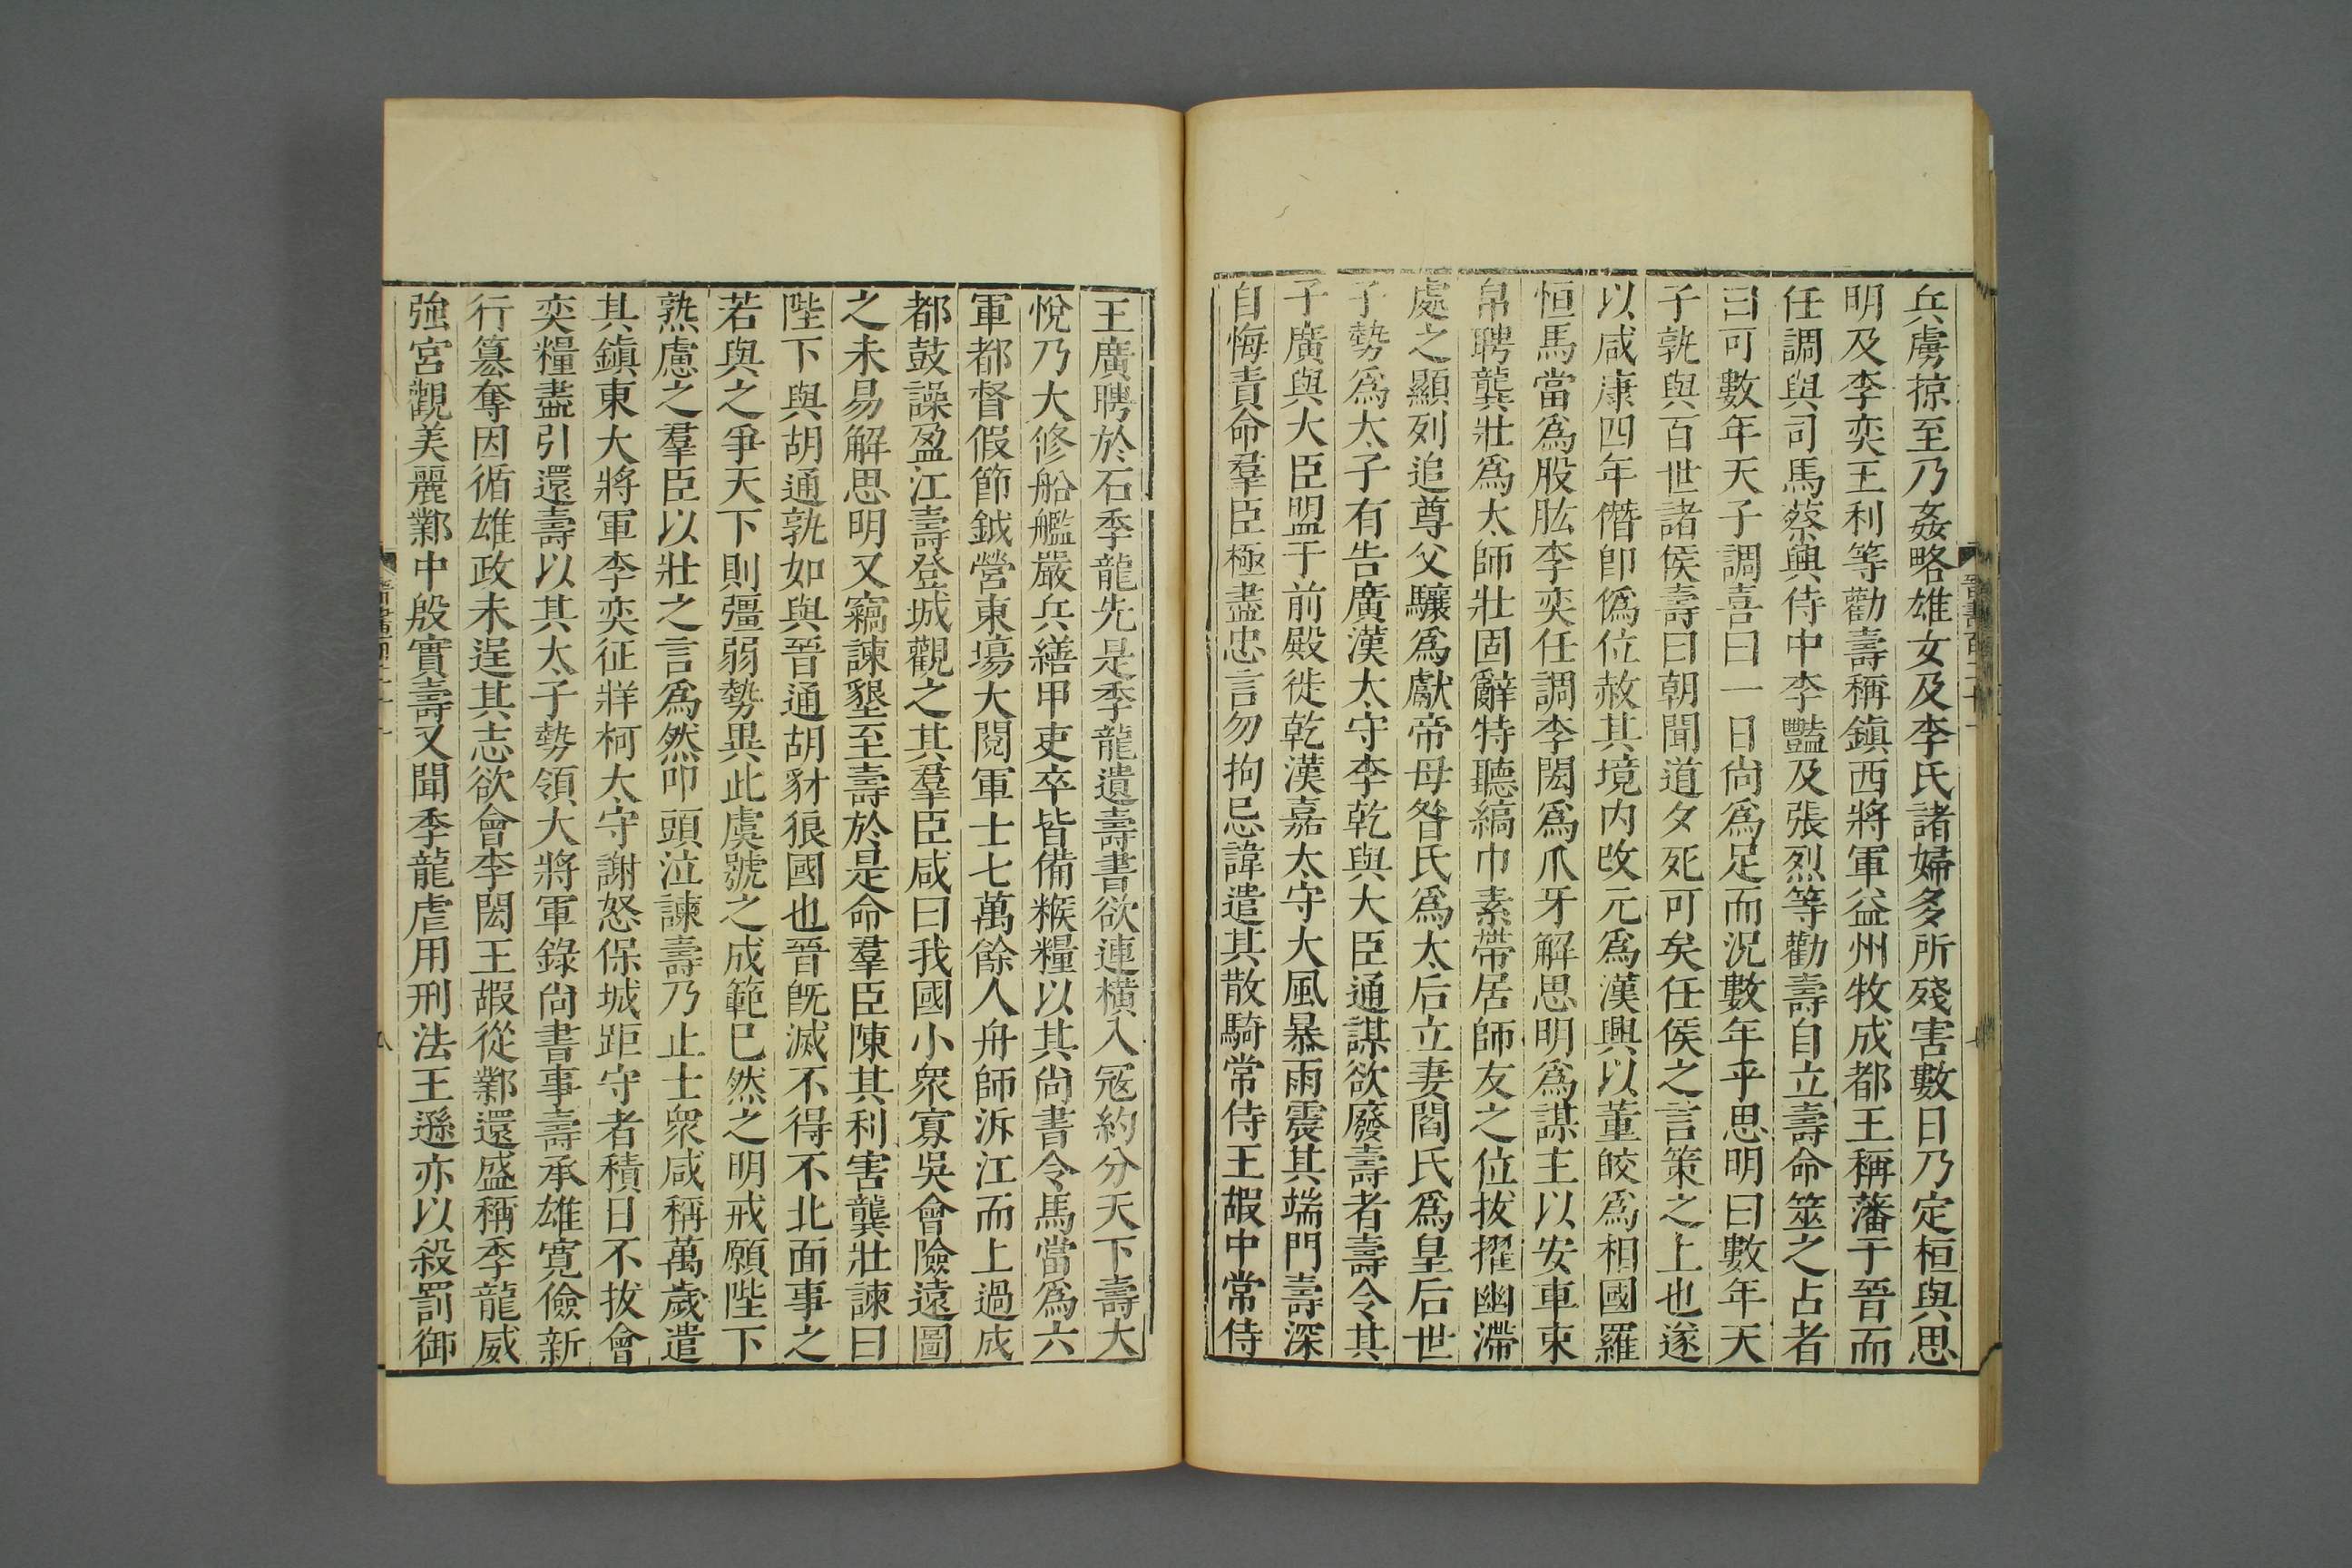 兵虜掠至乃姦略雄女及李氏諸婦多所殘害數日乃定桓與思
明及李奕王利等勸壽稱鎮西將軍益州牧成都王稱藩于晉而
任調與司馬蔡興侍中李豔及張烈等勸壽自立壽命筮之占者
曰可數年天子調喜曰一日尚爲足而況數年乎思明曰數年天
子孰與百世諸侯壽曰朝聞道夕死可矣任侯之言策之上也遂
以咸康四年僭卽僞位赦其境内改元爲漢興以董皎爲相國羅
恒馬當爲股肱李奕任調李閎爲爪牙解思明爲謀主以安車束
帛聘龔壯爲太師壯固辭特聽縞巾素帶居師友之位拔擢幽滯
處之顯列追尊父驤爲獻帝母昝氏爲太后立妻閻氏爲皇后世
子勢爲太子有告廣漢太守李乾與大臣通謀欲廢壽者壽令其
子廣與大臣盟于前殿徙乾漢嘉太守大風暴雨震其端門壽深
自悔責命羣臣極盡忠言勿拘忌諱遣其散騎常侍王嘏中常侍
王廣聘於石季龍先是季龍遺壽書欲連橫入寇約分天下壽大
悅乃大修船艦嚴兵繕甲吏卒皆備糇糧以其尚書令馬當爲六
軍都督假節鉞營東場大閱軍士七萬餘人舟師泝江而上過成
都鼓譟盈江壽登城觀之其羣臣咸曰我國小衆寡吳會險遠圖
之未易解思明又竊諫墾至壽於是命羣臣陳其利害龔壯諫曰
陛下與胡通孰如與晉通胡豺狼國也晉旣滅不得不北面事之
若與之爭天下則彊弱勢異此虞虢之成範已然之明戒願陛下
熟慮之羣臣以壯之言爲然叩頭泣諫壽乃止士衆咸稱萬歲遣
其鎮東大將軍李奕征牂柯太守謝怒保城距守者積日不拔會
奕糧盡引還壽以其太子勢領大將軍錄尚書事壽承雄寬儉新
行簒奪因循雄政未逞其志欲會李閎王嘏從鄴還盛稱季龍威
強宮觀美麗鄴中殷實壽又聞季龍虐用刑法王遜亦以殺罰御